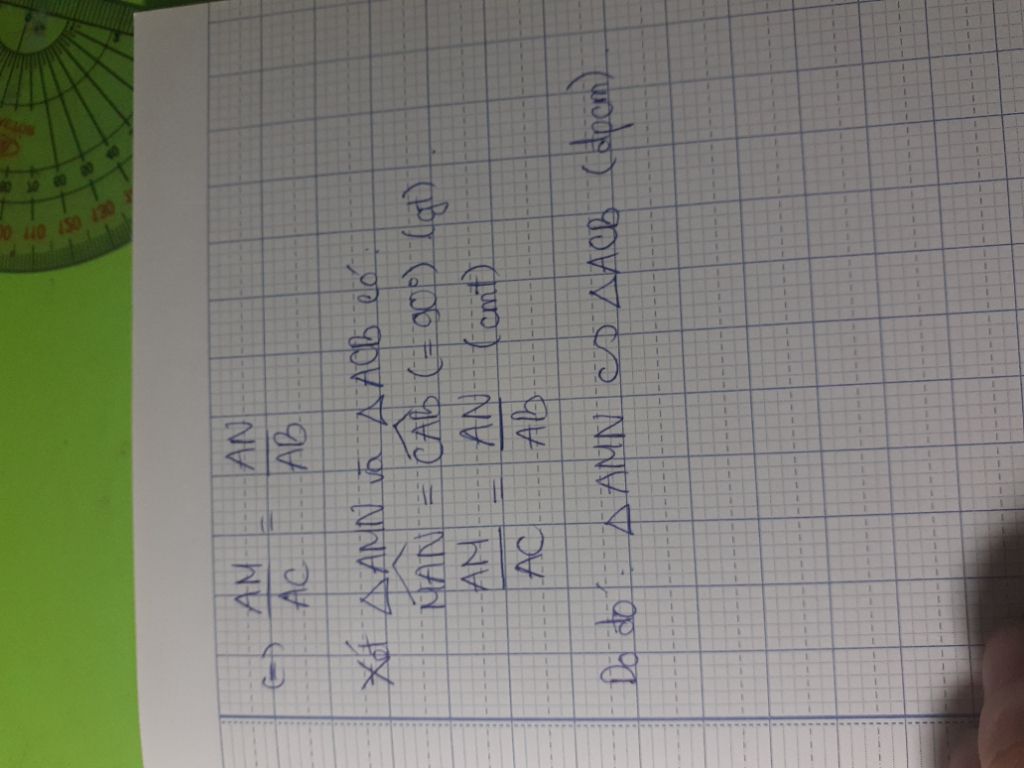 (=) AM/AC = AN/AB
Xét △AMN và △ACB có:
MAN = CAB (= 90°) (gt)
AM/AC = AN/AB (cmt)
Do đó: △AMN ∽ △ACB (đpcm)